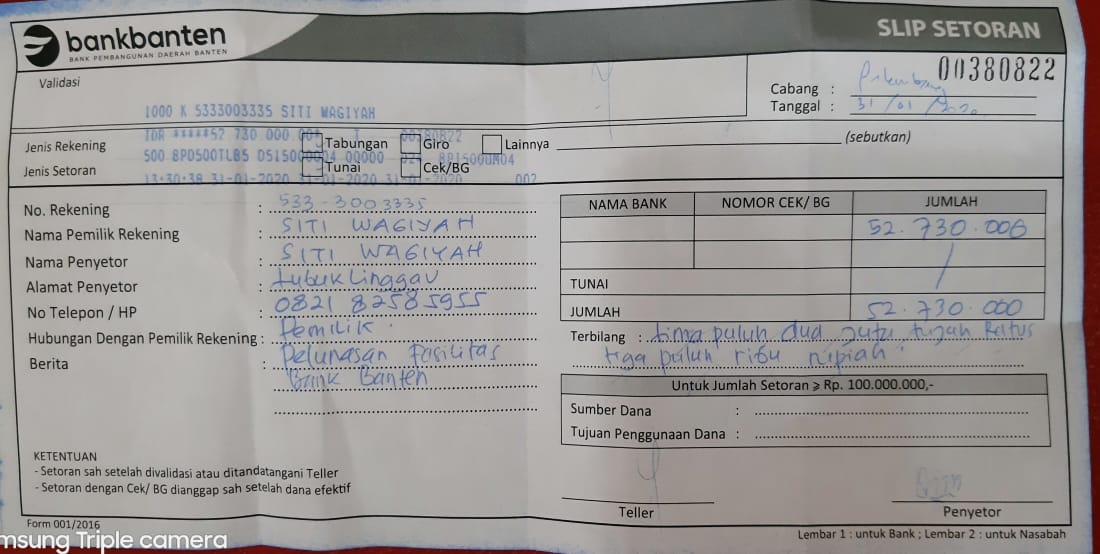 bankbanten
BANK PEMBANGUNAN DAERAH BANTEN
SLIP SETORAN
00380822
Validasi
Cabang :
Tanggal : 31/01/2020
1000 K 5333003335 SITI WAGIYAH
IDR *****52 730 000 00 00380822
Jenis Rekening Tabungan Giro Lainnya (sebutkan)
500 8PD500TLBS 0515000004 00000
Jenis Setoran Tunai Cek/BG
13:30:38 31-01-2020 31-01-2020 31-01-2020 002
No. Rekening : 533-3003335
Nama Pemilik Rekening : SITI WAGIYAH
Nama Penyetor : SITI WAGIYAH
Alamat Penyetor : Lubuk Linggau
No Telepon / HP : 0821 82585955
Hubungan Dengan Pemilik Rekening : Pemilik.
Berita : Pelunasan Fasilitas
Bank Banten
NAMA BANK NOMOR CEK/ BG JUMLAH
52.730.000
TUNAI
JUMLAH 52.730.000
Terbilang : Lima puluh dua juta tujuh Ratus
tiga puluh ribu rupiah.
Untuk Jumlah Setoran ⩾ Rp. 100.000.000,-
Sumber Dana :
Tujuan Penggunaan Dana :
KETENTUAN
- Setoran sah setelah divalidasi atau ditandatangani Teller
- Setoran dengan Cek/ BG dianggap sah setelah dana efektif
Teller
Penyetor
Form 001/2016
Lembar 1 : untuk Bank ; Lembar 2 : untuk Nasabah
msung Triple camera